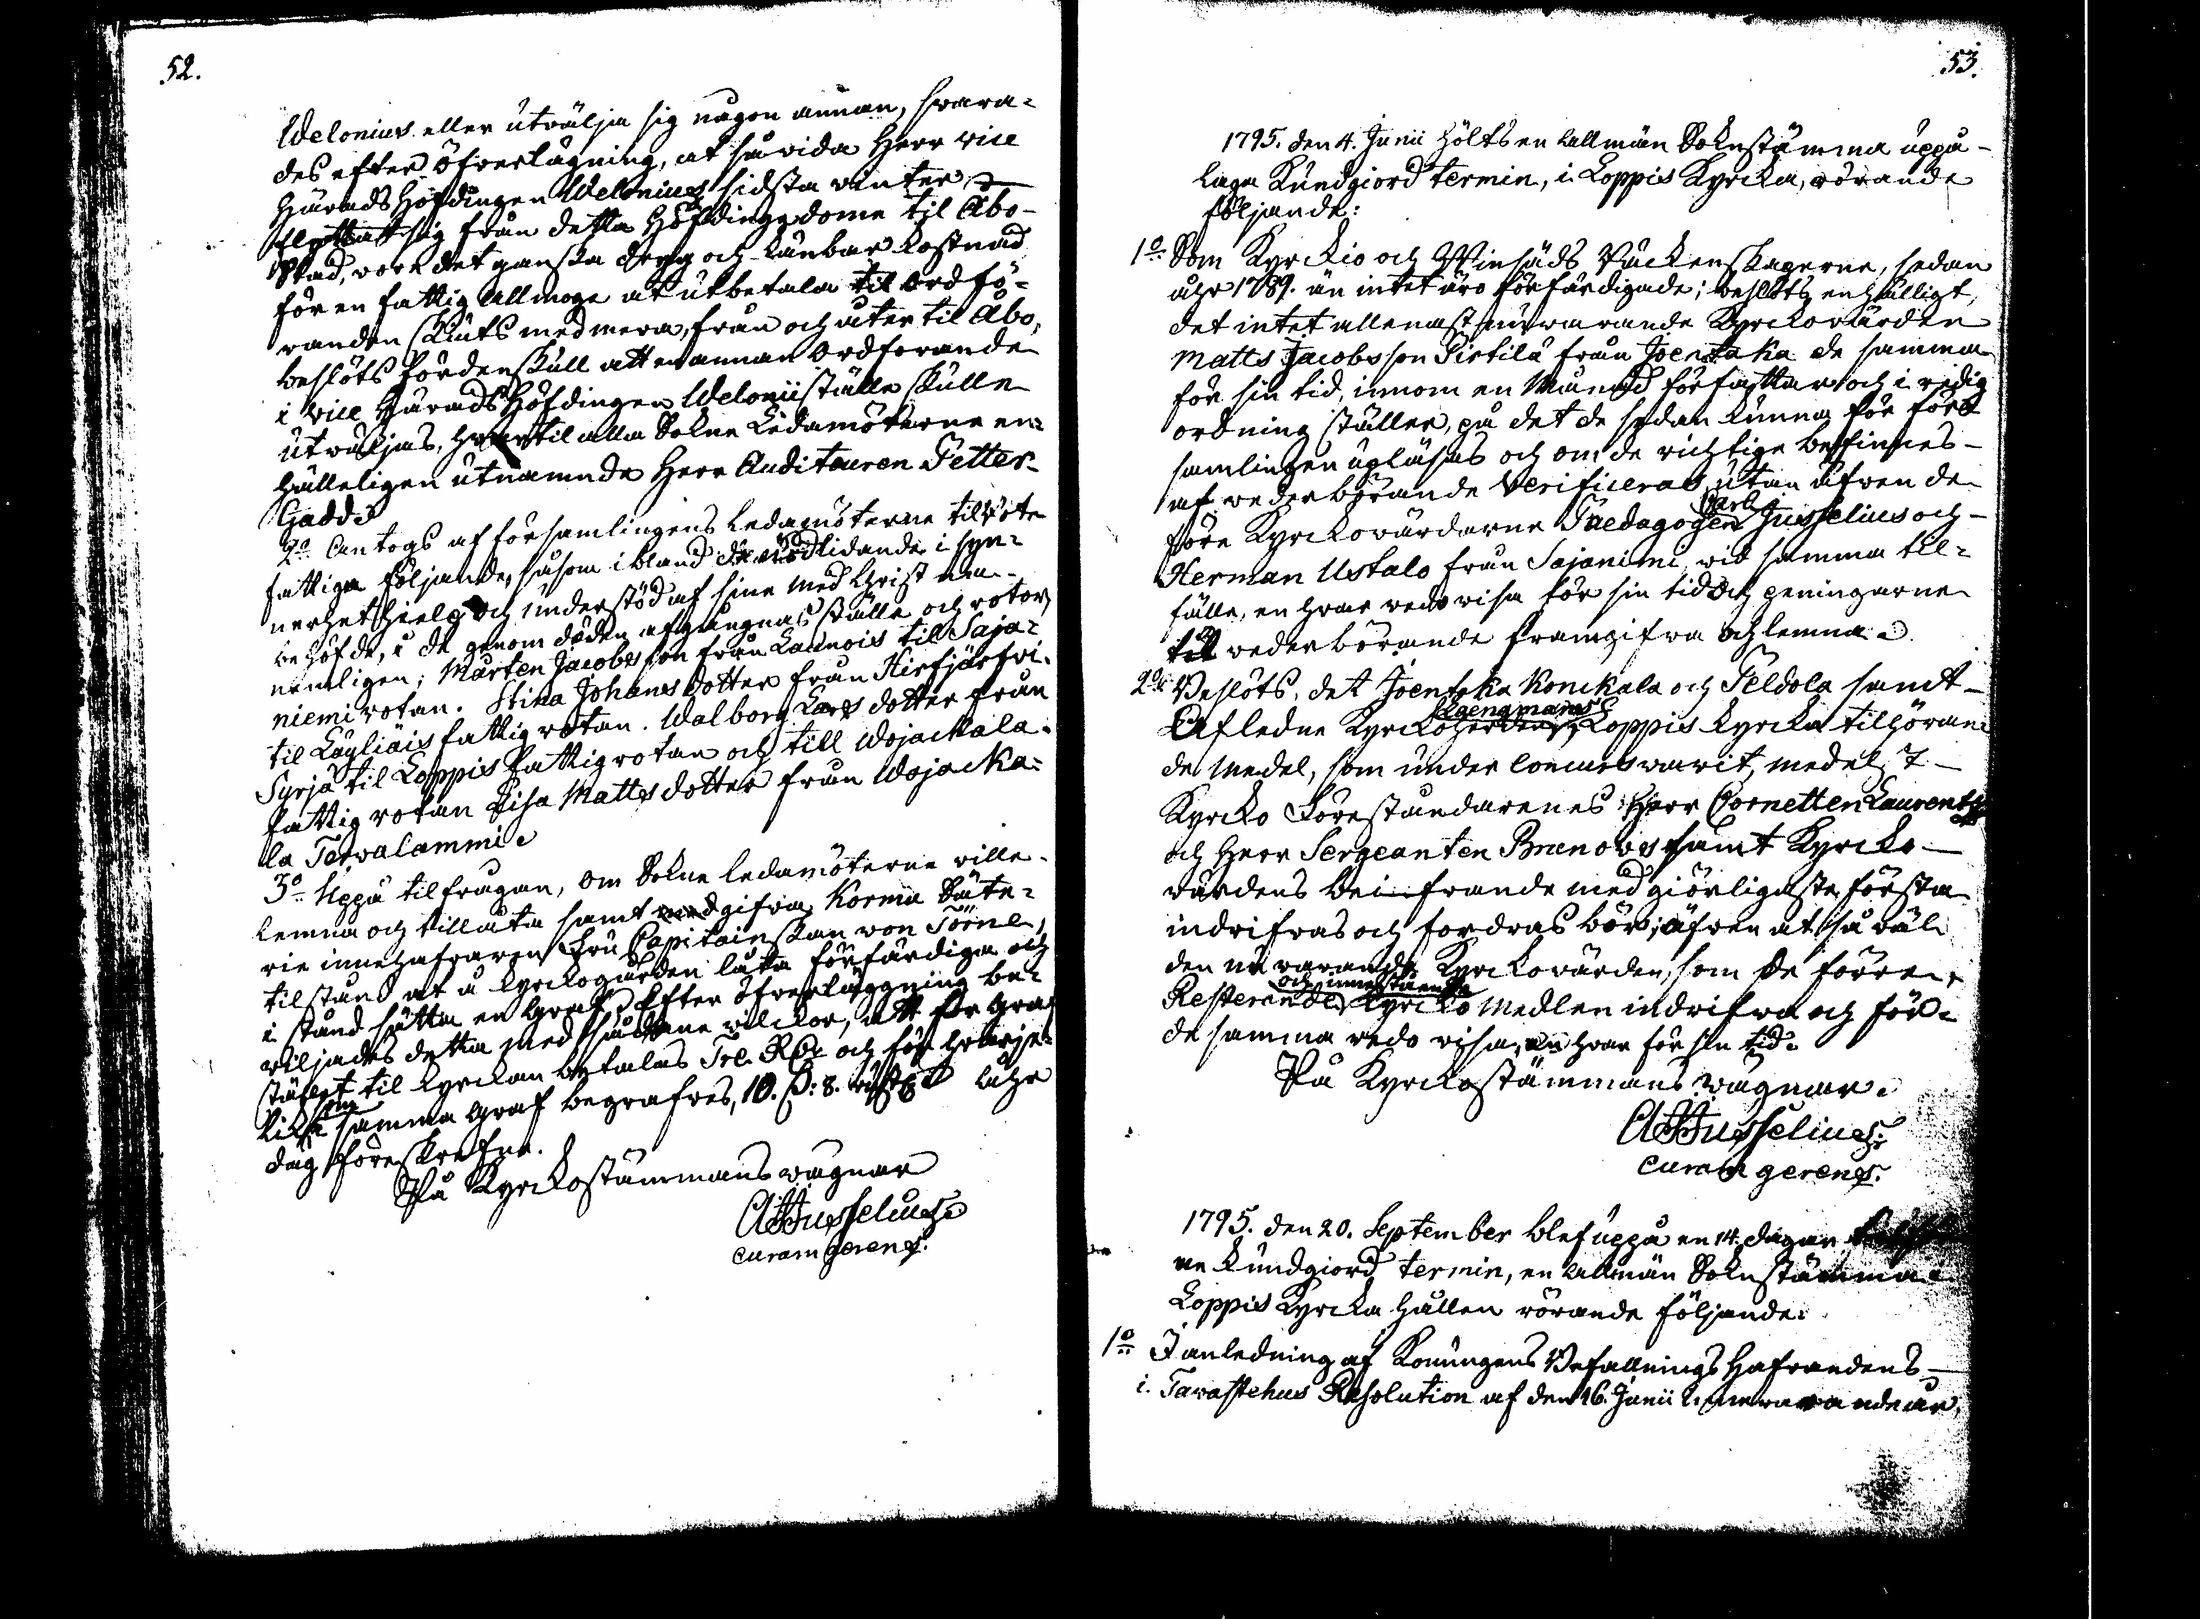 52.
Welonius eller utvälja sig någon annan, svara-
des efter öfverlägning, at så vida Herr vice
Härads Höfdingen Welonius sidsta vinter
flyttat sig från detta Höfdingedöme til Åbo
Stad, vore det ganska dryg och känbar kostnad
för en fattig allmoge at utbetala til Ordfö-
randen skiuts med mera, från och åter til Åbo,
beslöts fördenskull att en annan Ordförande
i vice Härads Höfdingen Welonii ställe skulle
utväljas, hvartil alla Sokne Ledamöterne en-
hälleligen utnämnde Herr Auditeuren Petter
Gadd.
2o Antogs af församlingens ledamöterne til Rote
fattiga följande, såsom ibland de nödlidande i syn-
nerhet hielp och understöd af sine med Christ
behöfde, i de genom döden afgångnas ställe och rotor,
nemligen; Mårten Jacobsson från Launois til Saja-
niemi rotan. Stina Johans dotter från Hirfjärfvi
til Läyliäis fattig rotan. Walborg Lars dotter från
Syrjä til Loppis fattig rotan och till Wojackala
fattig rotan Lisa Matts dotter från Wojacka-
la Tervalammi.
3o Uppå tilfrågan, om Sokne ledamöterne ville
lemna och tillåta samt medgifva Korma Säte-
rie innehafvaren Fru Capitainskan von Törne,
tilstånd at å kyrckogården låta förfärdiga och
i stånd sätta en Graf, Efter öfverläggning be-
viljades detta med sådane vilckor, att för Graf
stället til kyrckan betalas Tre RD och för hvarje
Lik som i samma Graf begrafves, 10. S: 8. Åhr
dag föreskrefne.
På Kyrckostämmans vägnar
A Husselius
curam gerens.
53.
1795. den 4. Junii hölts en allmän Soknstämma uppå
laga Kundgiord termin, i Loppis Kyrcka, rörande
följande:
1o Som Kyrckio och Winsäds Räckenskaperne, sedan
åhr 1789. än intet äro förfärdigade; beslöts enhälligt,
det intet allenast nuvarande Kyrckovärden
Matts Jacobsson Pirtilä från Joentaka de samma
för sin tid, innom en Månad författar och i redig
ordning ställer, på det de sedan kunna för för-
samlingen upläsas och om de richtige befinnes
af vederbörande verificeras, utan äfven de
förre Kyrckovärdarne Pædagogen Carl Husselius och
Herman Ustalo från Sajaniemi, vid samma til-
fälle, en hvar redo visa för sin tid och peningarne
till vederbörande framgifva och lemna.
2o Beslöts, det Joentaka Konickala och Peldola samt
Afledne Kyrckoherden Lgengmans Loppis kyrcka tilhöran-
de Medel, som under Concurs varit, medelst
Kyrcko Föreståndarenes Herr Cornetten Laurentz
och Herr Sergeanten Brunovs samt Kyrcko
värdens beifrande med giörligaste första
indrifvas och fordras bör; äfven at så väl
den nu varande Kyrckovärden, som de förre,
Resterande och innestående Kyrcko Medlen indrifva och för
de samma redo visa, en hvar för sin tid.
På Kyrckostämmans vägnar.
A Husselius.
curam gerens.
1795. den 20. September blef uppå en 14. dagar
ne kundgiord termin, en allmän Soknstämma i
Loppis Kyrcka hållen rörande följande.
1o I anledning af Konungens Befallnings Hafvandens
i Tavastehus Resolution af den 16. Junii innevarande år,